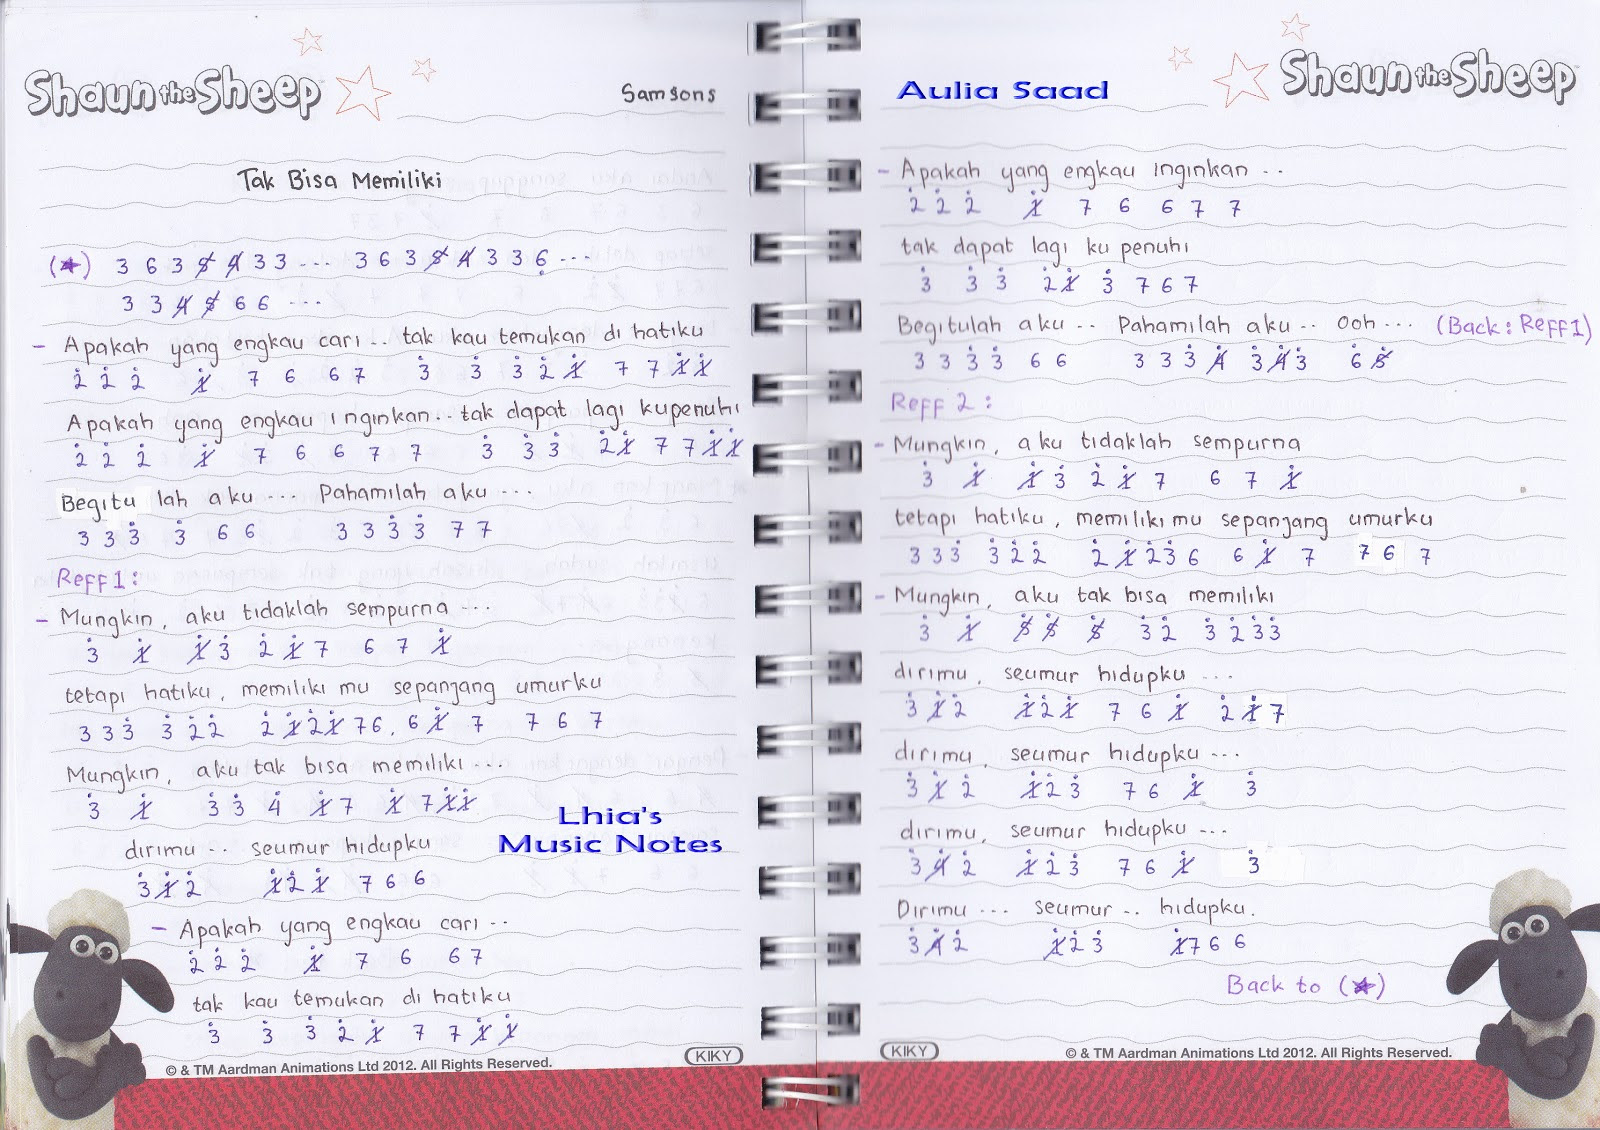 Shaun the Sheep
Samsons
Tak Bisa Memiliki
(★) 3 6 3 5̸ 4̸ 3 3 ... 3 6 3 5̸ 4̸ 3 3 6̣ ...
3 3 4̸ 5̸ 6 6 ...
- Apakah yang engkau cari .. tak kau temukan di hatiku
2̇ 2̇ 2̇ 1̸̇ 7 6 6 7 3̇ 3̇ 3̇ 2̇ 1̸̇ 7 7 1̸̇ 1̸̇
Apakah yang engkau inginkan .. tak dapat lagi kupenuhi
2̇ 2̇ 2̇ 1̸̇ 7 6 6 7 7 3̇ 3̇ 3̇ 2̇ 1̸̇ 7 7 1̸̇ 1̸̇
Begitu lah aku ... Pahamilah aku ...
3 3 3̇ 3̇ 6 6 3 3 3̇ 3̇ 7 7
Reff 1 :
- Mungkin, aku tidaklah sempurna ...
3̇ 1̸̇ 1̸̇ 3̇ 2̇ 1̸̇ 7 6 7 1̸̇
tetapi hatiku, memiliki mu sepanjang umurku
3 3 3̇ 3̇ 2̇ 2̇ 2̇ 1̸̇ 2̇ 1̸̇ 7 6 . 6 1̸̇ 7 7 6 7
Mungkin, aku tak bisa memiliki ...
3̇ 1̸̇ 3̇ 3̇ 4̇ 1̸̇ 7 1̸̇ 7 1̸̇ 1̸̇
dirimu .. seumur hidupku
3̇ 1̸̇ 2̇ 1̸̇ 2̇ 1̸̇ 7 6 6
Lhia's
Music Notes
- Apakah yang engkau cari ..
2̇ 2̇ 2̇ 1̸̇ 7 6 6 7
tak kau temukan di hatiku
3̇ 3̇ 3̇ 2̇ 1̸̇ 7 7 1̸̇ 1̸̇
© & TM Aardman Animations Ltd 2012. All Rights Reserved.
KIKY
Aulia Saad
Shaun the Sheep
- Apakah yang engkau inginkan ..
2̇ 2̇ 2̇ 1̸̇ 7 6 6 7 7
tak dapat lagi ku penuhi
3̇ 3̇ 3̇ 2̇ 1̸̇ 3̇ 7 6 7
Begitulah aku .. Pahamilah aku .. Ooh ... (Back : Reff 1)
3 3 3̇ 3̇ 6 6 3 3 3̇ 4̸̇ 3̇ 4̸̇ 3̇ 6̇ 5̸̇
Reff 2 :
- Mungkin, aku tidaklah sempurna
3̇ 1̸̇ 1̸̇ 3̇ 2̇ 1̸̇ 7 6 7 1̸̇
tetapi hatiku, memiliki mu sepanjang umurku
3 3 3̇ 3̇ 2̇ 2̇ 2̇ 1̸̇ 2̇ 3̇ 6 6 1̸̇ 7 7 6 7
- Mungkin, aku tak bisa memiliki
3̇ 1̸̇ 5̸̇ 5̸̇ 5̸̇ 3̇ 2̇ 3̇ 2̇ 3̇ 3̇
dirimu, seumur hidupku ...
3̇ 1̸̇ 2̇ 1̸̇ 2̇ 1̸̇ 7 6 1̸̇ 2̇ 1̸̇ 7
dirimu, seumur hidupku ...
3̇ 1̸̇ 2̇ 1̸̇ 2̇ 3̇ 7 6 1̸̇ 3̇
dirimu, seumur hidupku ...
3̇ 4̸̇ 2̇ 1̸̇ 2̇ 3̇ 7 6 1̸̇ 3̇
Dirimu ... seumur .. hidupku.
3̇ 4̸̇ 2̇ 1̸̇ 2̇ 3̇ 1̸̇ 7 6 6
Back to (★)
KIKY
© & TM Aardman Animations Ltd 2012. All Rights Reserved.